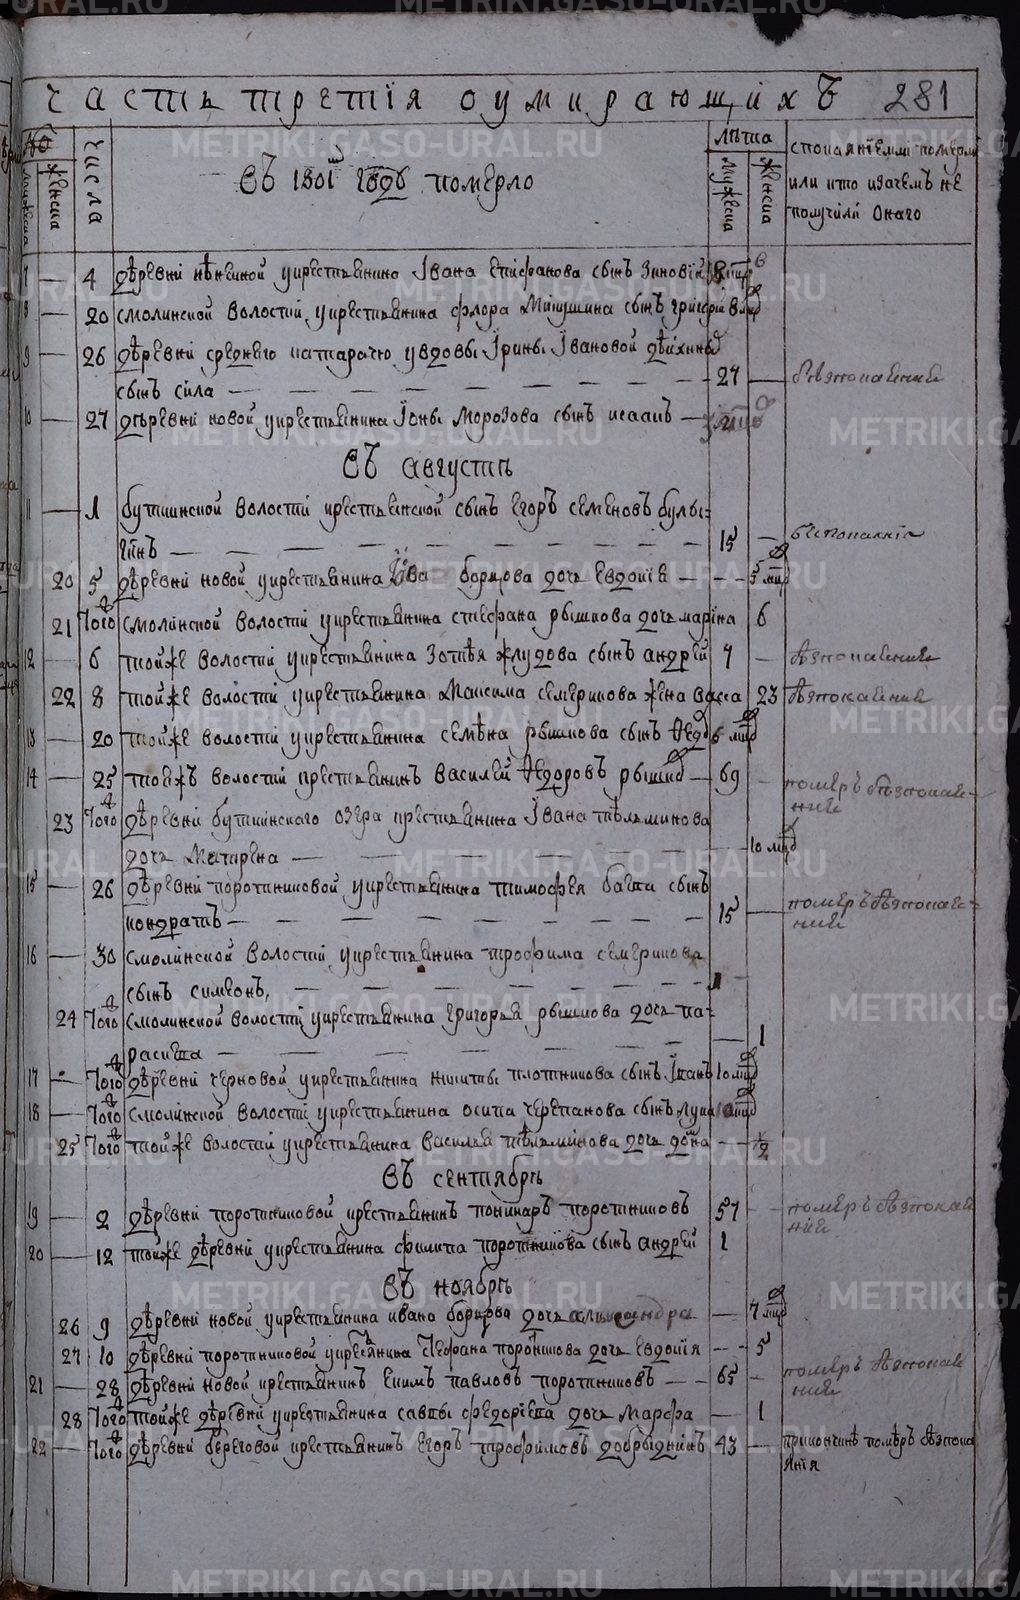 часть третїя оумирающихъ 281
№ числа въ 1801 годе померло лѣта с покаянїемли померли
мужеска женска мужеска женска или кто изачемъ не
получили онаго
7 — 4 дѣревни нѣкиной укрестьянина Ївана Епифанова сынъ Зиновїй
8 — 20 смолинской волости укрестьянина флора сынъ григорей 8 мцд
9 — 26 дѣревни среднего украдовы Їрины Ївановой
сынъ сила — 27 — бѣзпокаенние
10 — 27 дѣревни новой укрестьянина Їоны Морозова сынъ исаакъ —
въ августѣ
11 — 1 буткинской волости крестьянской сынъ Егоръ семеновъ булы-
гинъ — 15 —
20 5 дѣревни новой укрестьянина Їва борцова дочь Евдокїѣ — 5 мцд
21 Того смолинской волостїй укрестьянина стефана рышкова дочь марїна 6
12 — 6 тойже волостїй укрестьянина Зотѣя жлудова сынъ андрѣй 7 — бѣзпокаенние
22 8 тойже волостїй укрестьянина Максима семерикова жена васса 23 бѣзпокаенние
13 — 20 тойже волостїй укрестьянина семѣна рышкова сынъ Ѳедо 6 мцд
14 — 25 тоежъ волостїй крестьянинъ василей Ѳедоровъ рышко — 69 — помѣръ бѣзпокае-
ние
23 Того дѣревни буткинского озера крестьянина Ївана тѣльминова
дочь Матрена — 10 мцд
15 — 26 дѣревни поротниковой укрестьянина тимофѣя сынъ
кондратъ — 15 — помѣръ бѣзпокае-
ние
16 — 30 смолинской волостїй укрестьянина трофима семерикова
сынъ симеонъ, — 1 —
24 Того смолинской волостїй укрестьянина григорья рышкова дочь па-
расковья — 1
17 — Того дѣревни черновой укрестьянина никиты плотникова сынъ Їванъ 10 мцд
18 — Того смолинской волостїй укрестьянина осипа черепанова сынъ лука
25 Того тойже волостїй укрестьянина василья тѣльминова дочь — 1/2
въ сентябрѣ
19 — 2 дѣревни поротниковой крестьянинъ поникаръ поротниковъ 57 — помѣръ бѣзпокае
ние
20 — 12 тойже дѣревни укрестьянина филипа поротникова сынъ андрей 1
въ ноябрѣ
26 9 дѣревни новой укрестьянина ивана борцова дочь александра — 7 мцд
27 10 дѣревни поротниковой укрестьянина стефана поротникова дочь евдокїя — 5
21 — 28 дѣревни новой крестьянинъ Екимъ павловъ поротниковъ — 65 — помѣръ бѣзпокае
ние
28 Того тойже дѣревни укрестьянина савы федорѣева дочь марфа — 1
22 — Того дѣревни береговой крестьянинъ Егоръ трофимовъ добрыднинъ 43 — помѣръ бѣзпока
янїя
METRIKI.GASO-URAL.RU